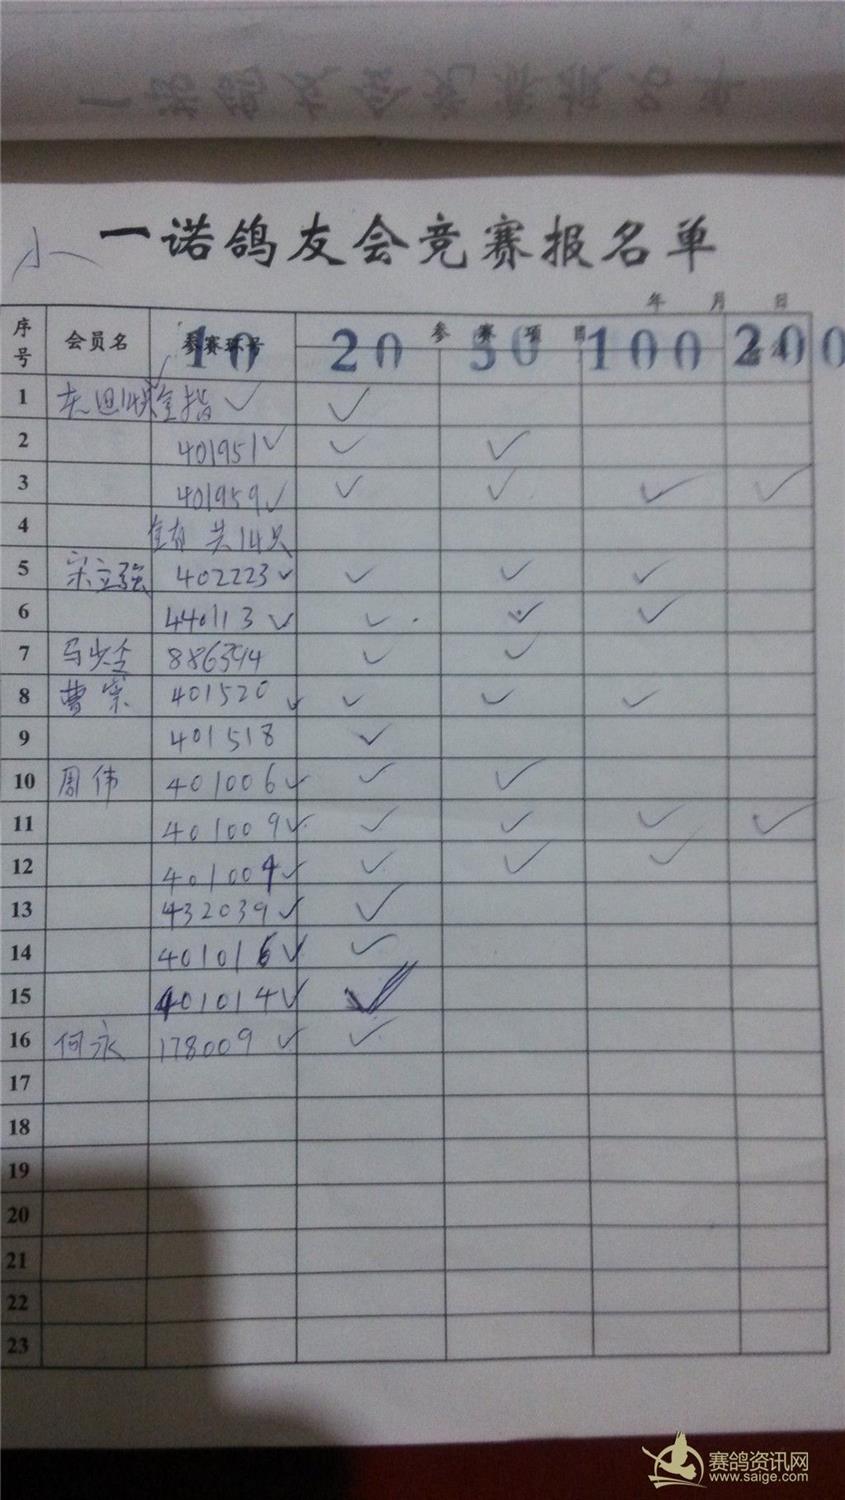 一诺鸽友会竞赛报名单
小 一诺鸽友会竞赛报名单
年 月 日
序号 会员名 参赛环号 参赛项目
10 20 50 100 200
1 全指 ✓ ✓
2 401951 ✓ ✓ ✓
3 401959 ✓ ✓ ✓ ✓ ✓
4 共14只
5 宋立强 402223 ✓ ✓ ✓ ✓
6 440113 ✓ ✓ ✓ ✓
7 886394 ✓ ✓
8 曹 401520 ✓ ✓ ✓ ✓
9 401518 ✓
10 周伟 401006 ✓ ✓ ✓
11 401009 ✓ ✓ ✓ ✓ ✓
12 401004 ✓ ✓ ✓ ✓
13 432039 ✓ ✓
14 401016 ✓ ✓
15 401014 ✓ ✓
16 何永 178009 ✓ ✓
17
18
19
20
21
22
23
赛鸽资讯网
www.saige.com